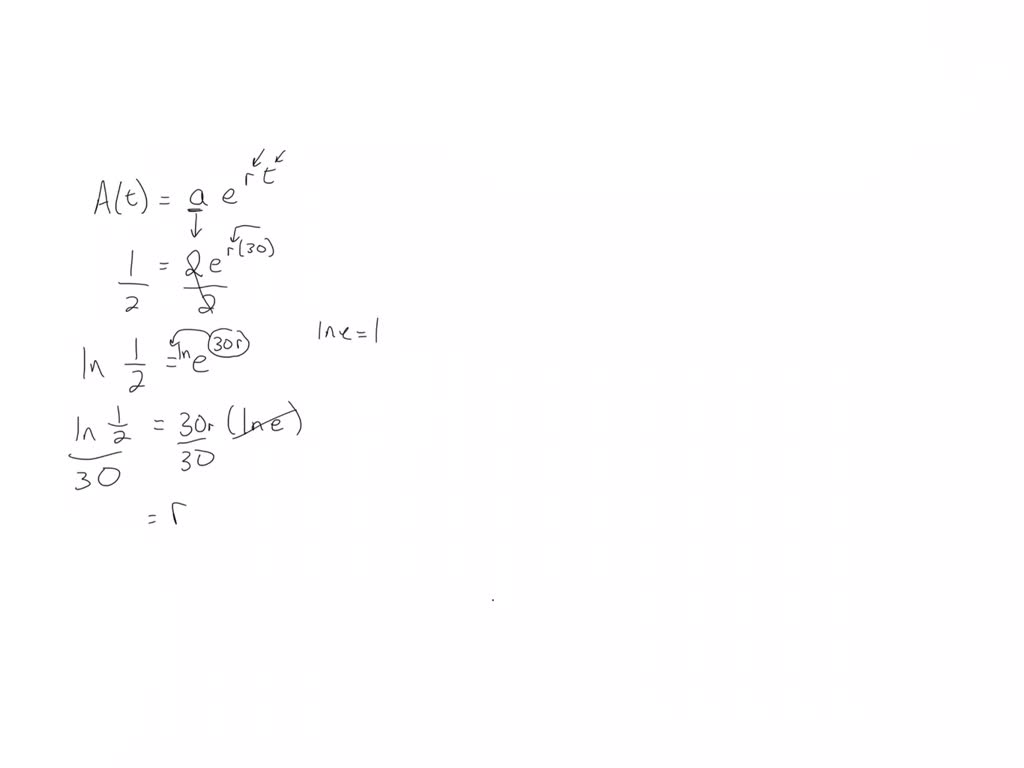 A(t) = a e^{rt}
1/2 = 2e^{r(30)}/2
ln 1/2 = ln e^{30r}
ln e = 1
ln 1/2 / 30 = 30r/30 (ln e)
= r